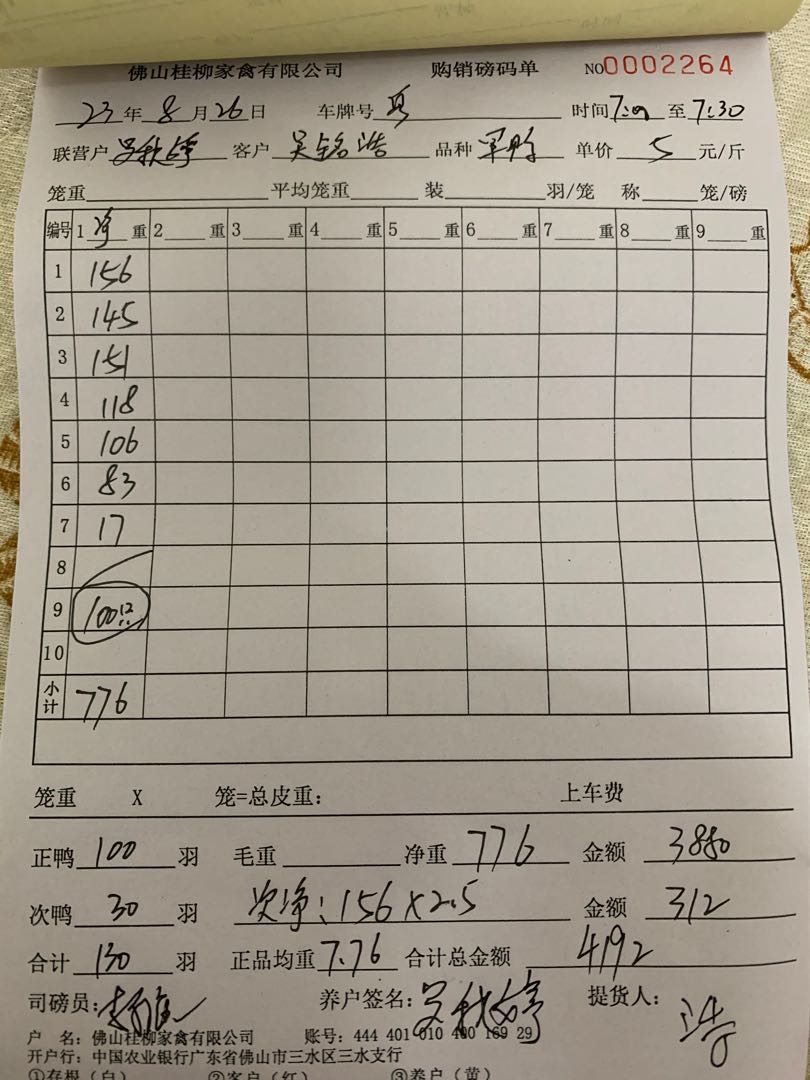 佛山桂柳家禽有限公司 购销磅码单 NO0002264
23年8月26日 车牌号 时间7:00至7:30
联营户 客户 吴铭浩 品种 单价 5 元/斤
笼重 平均笼重 装 羽/笼 称 笼/磅
编号 1净重 2 重 3 重 4 重 5 重 6 重 7 重 8 重 9 重
1 156
2 145
3 151
4 118
5 106
6 83
7 17
8
9 100只
10
小计 776
笼重 X 笼=总皮重: 上车费
正鸭 100 羽 毛重 净重 776 金额 3880
次鸭 30 羽 次净:156×2.5 金额 312
合计 130 羽 正品均重 7.76 合计总金额 4192
司磅员: 养户签名: 提货人: 浩
户 名:佛山桂柳家禽有限公司 账号:444 401 010 400 169 29
开户行:中国农业银行广东省佛山市三水区三水支行
①存根(白) ②客户(红) ③养户(黄)